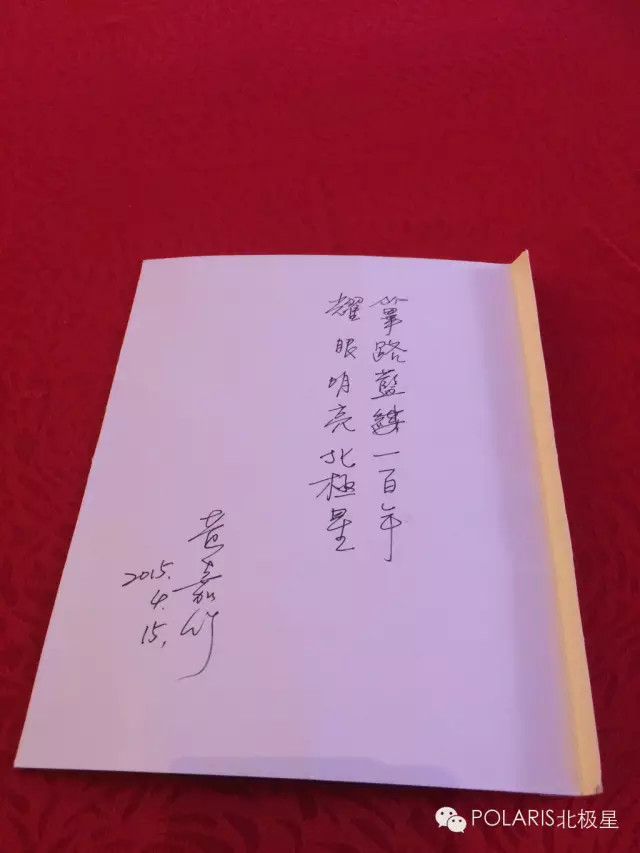 篳路藍縷一百年
耀眼明亮北極星
黄嘉
2015.
4.
15.
POLARIS北极星